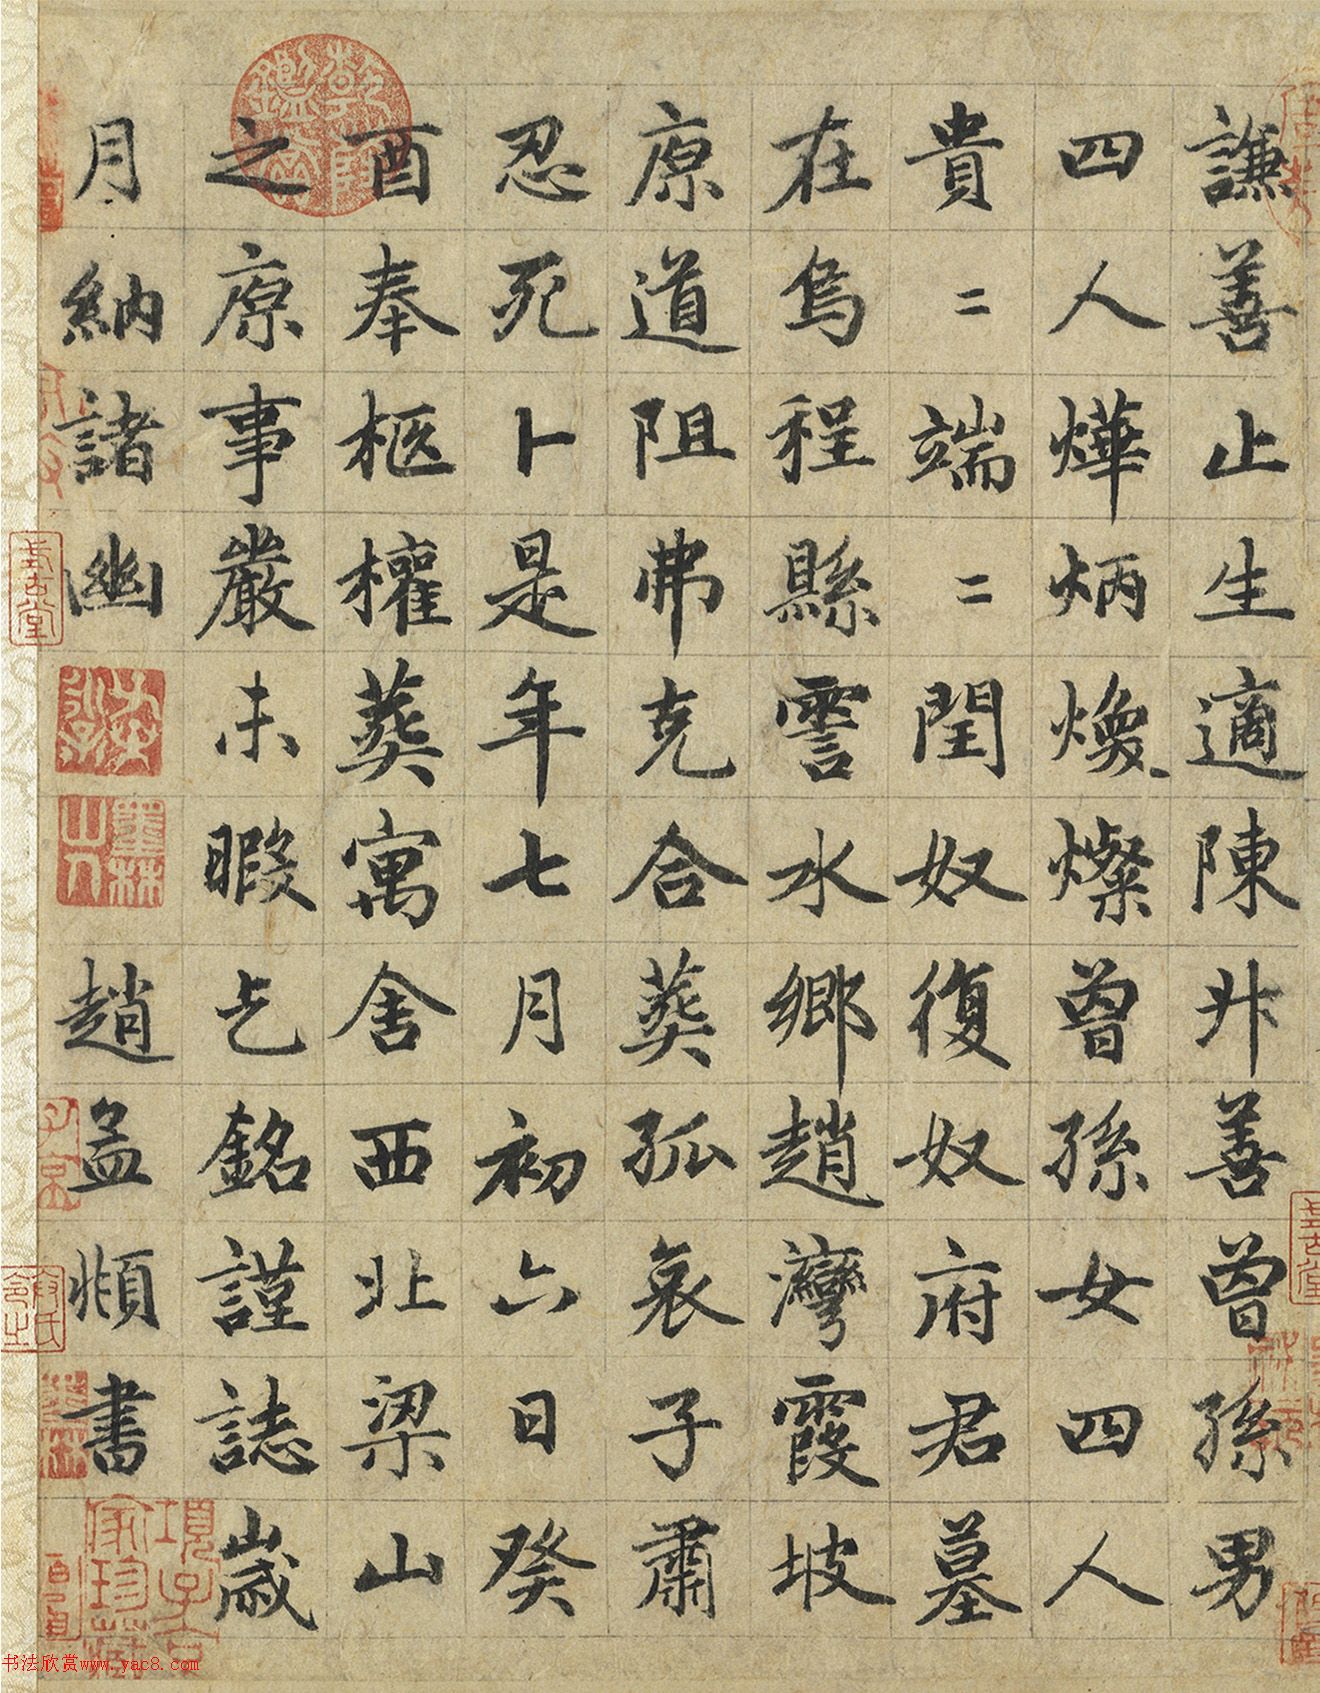 謙善止生適陳舛善曾孫男
四人燁炳煥燦曾孫女四人
貴二端二閏奴復奴府君墓
在烏程縣霅水鄉趙灣霞坡
原道阻弗克合葬孤哀子肅
忍死卜是年七月初六日癸
酉奉柩權葬寓舍西北梁山
之原事嚴未暇乞銘謹誌歲
月納諸幽
趙孟頫書
項子京家珍藏
書法欣赏www.yac8.com